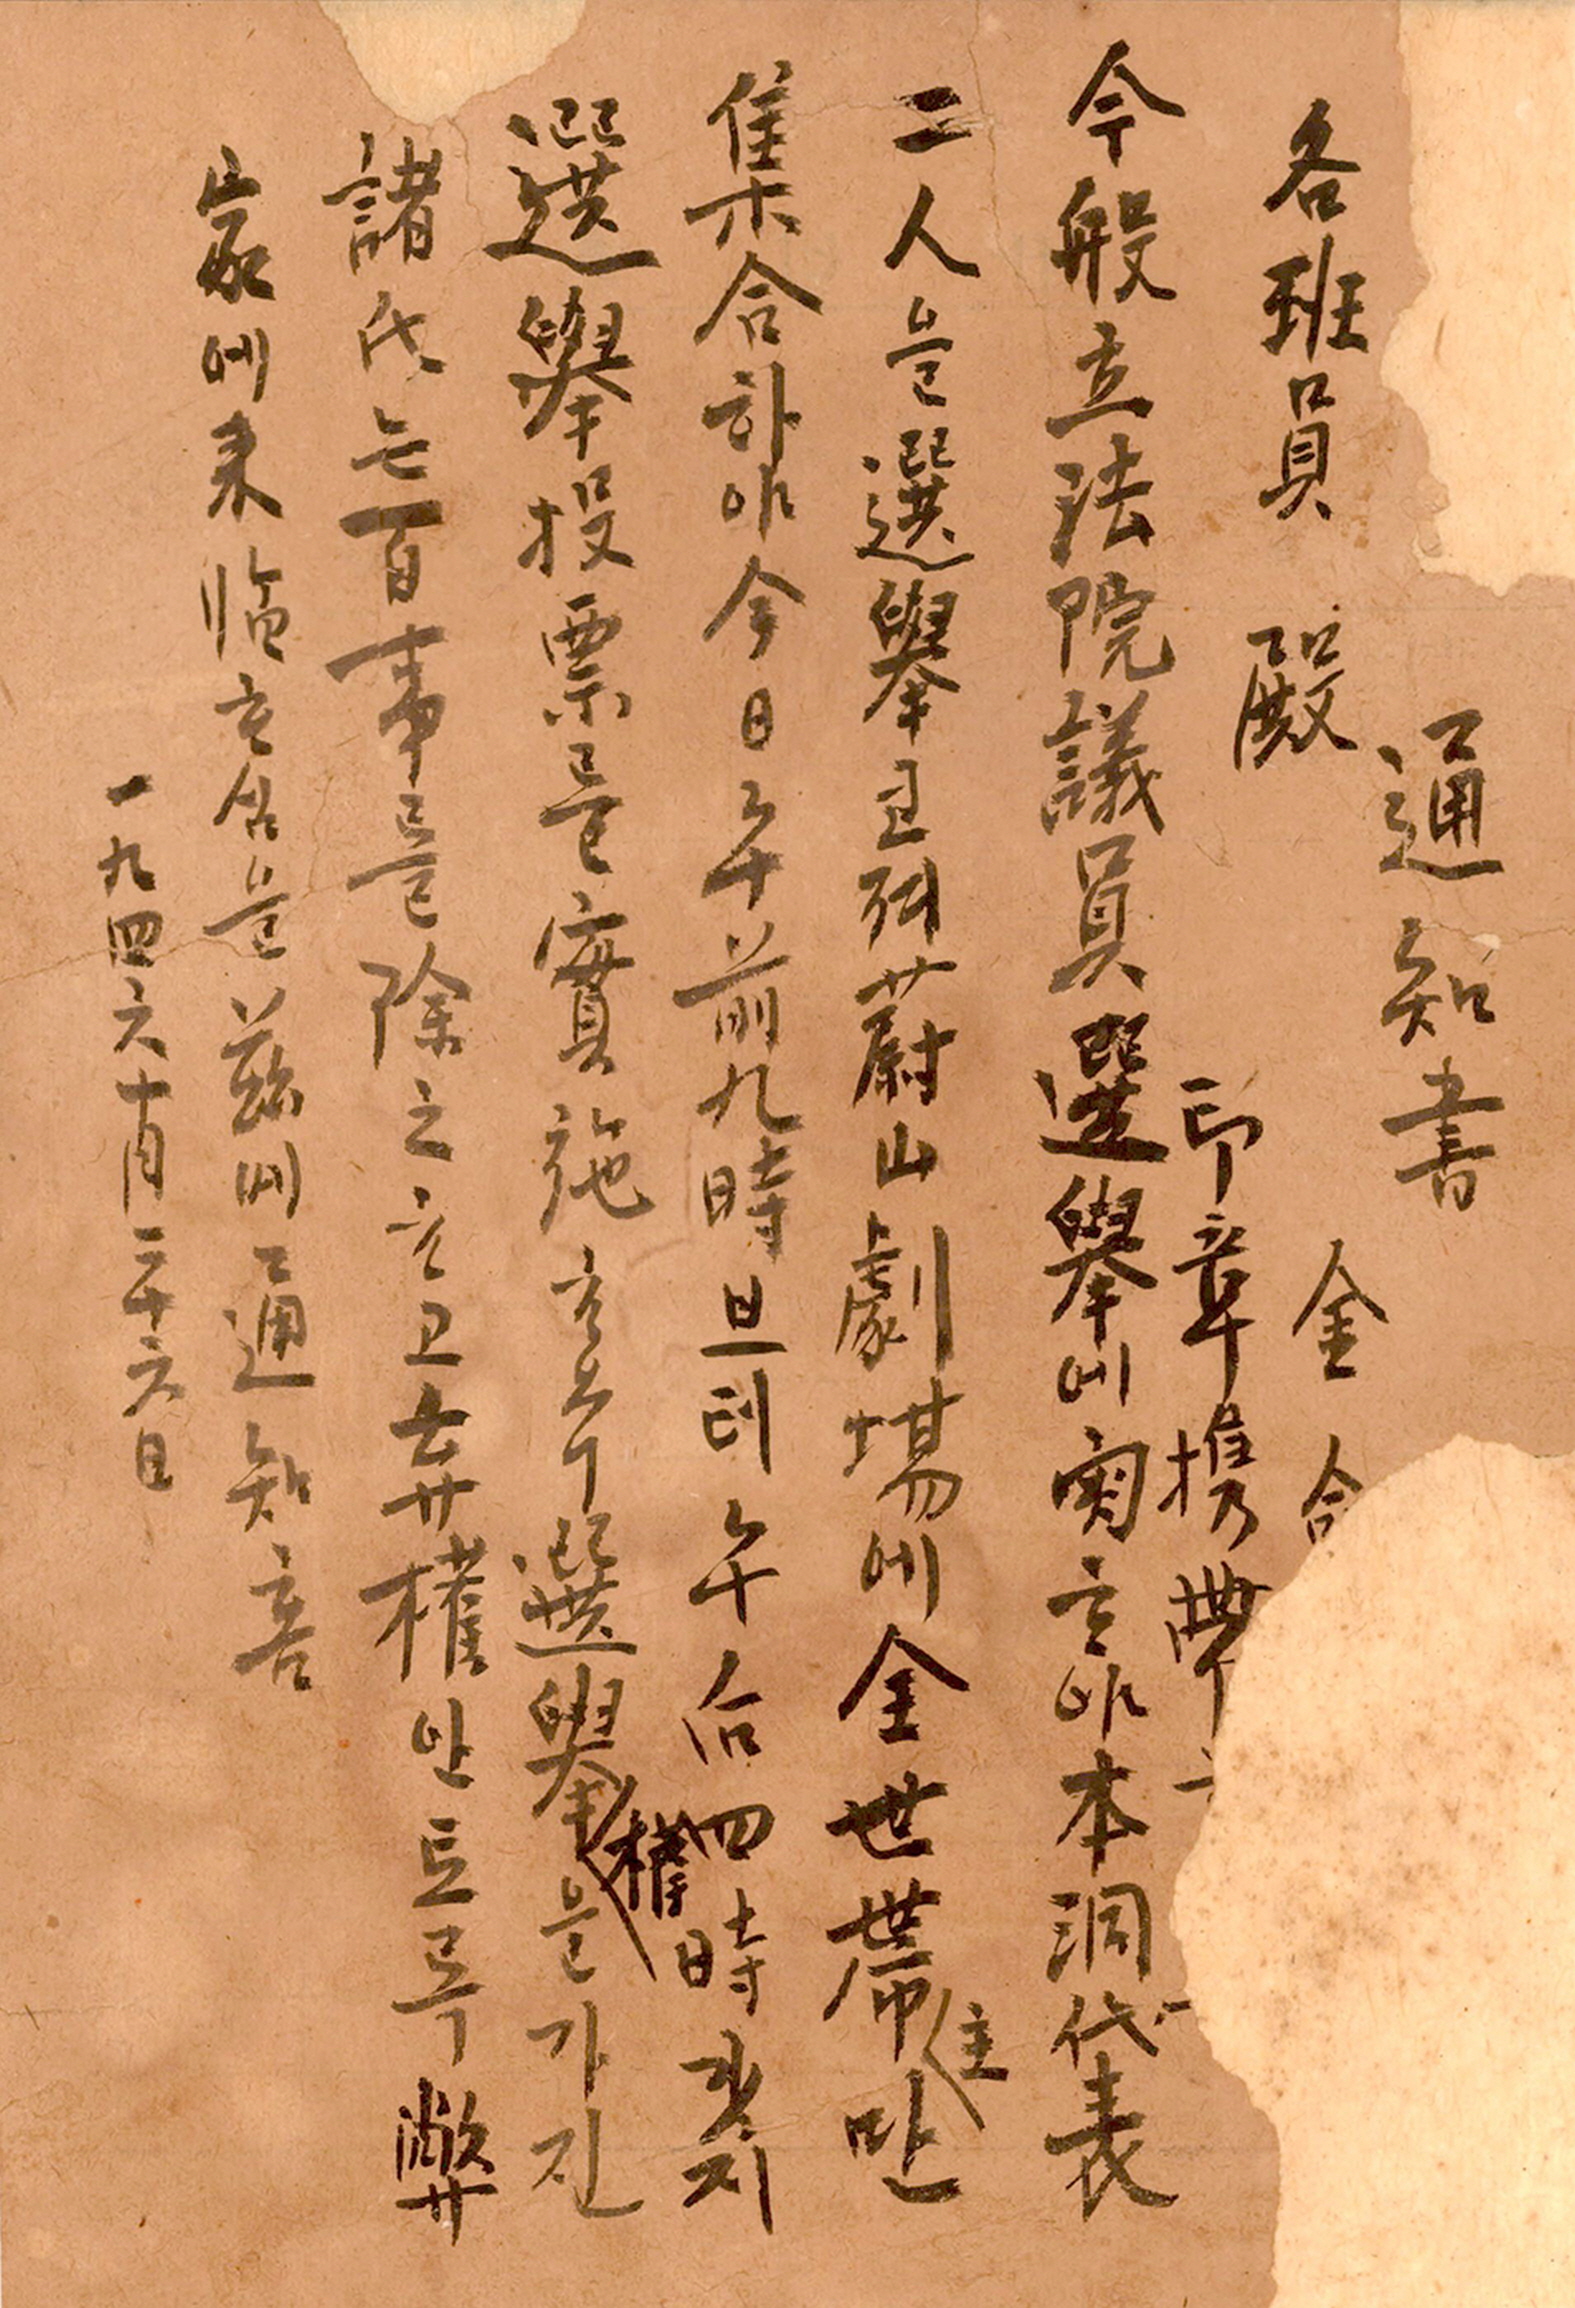 通知書
各班員 殿 金
印章携帶
今般立法院議員選擧에 하야 本洞代表
二人을 選擧코저 蔚山劇場에 全世帶主만
集合하야 今日午前九時브터 午后四時지
選擧投票를 實施하오니 選擧權을 가진
諸氏는 百事를 除之하고 棄權안토록 弊
家에 來臨하심을 玆에 通知함
一九四六十月二十六日